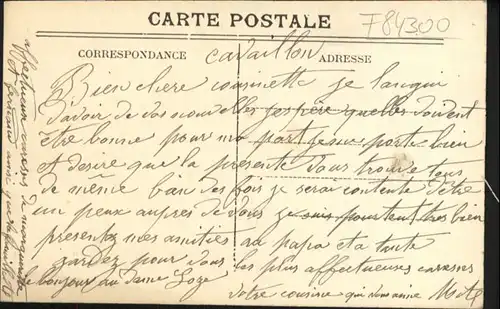 CARTE POSTALE
F84300
CORRESPONDANCE
cavaillon
ADRESSE
Bien chere cousinette je languis
davoir de vos nouvelles jespère quelles doivent
être bonne pour ma part je me porte bien
et desire que la presente vous trouve tous
de même bien des fois je serai contente d'être
un peux aupres de vous je suis pourtant tres bien
presentez mes amitiés au papa et a tante
gardez pour vous les plus affectueuses caresses
le bonjour au dame Loze
votre cousine qui vous aime
affectueuses caresses de